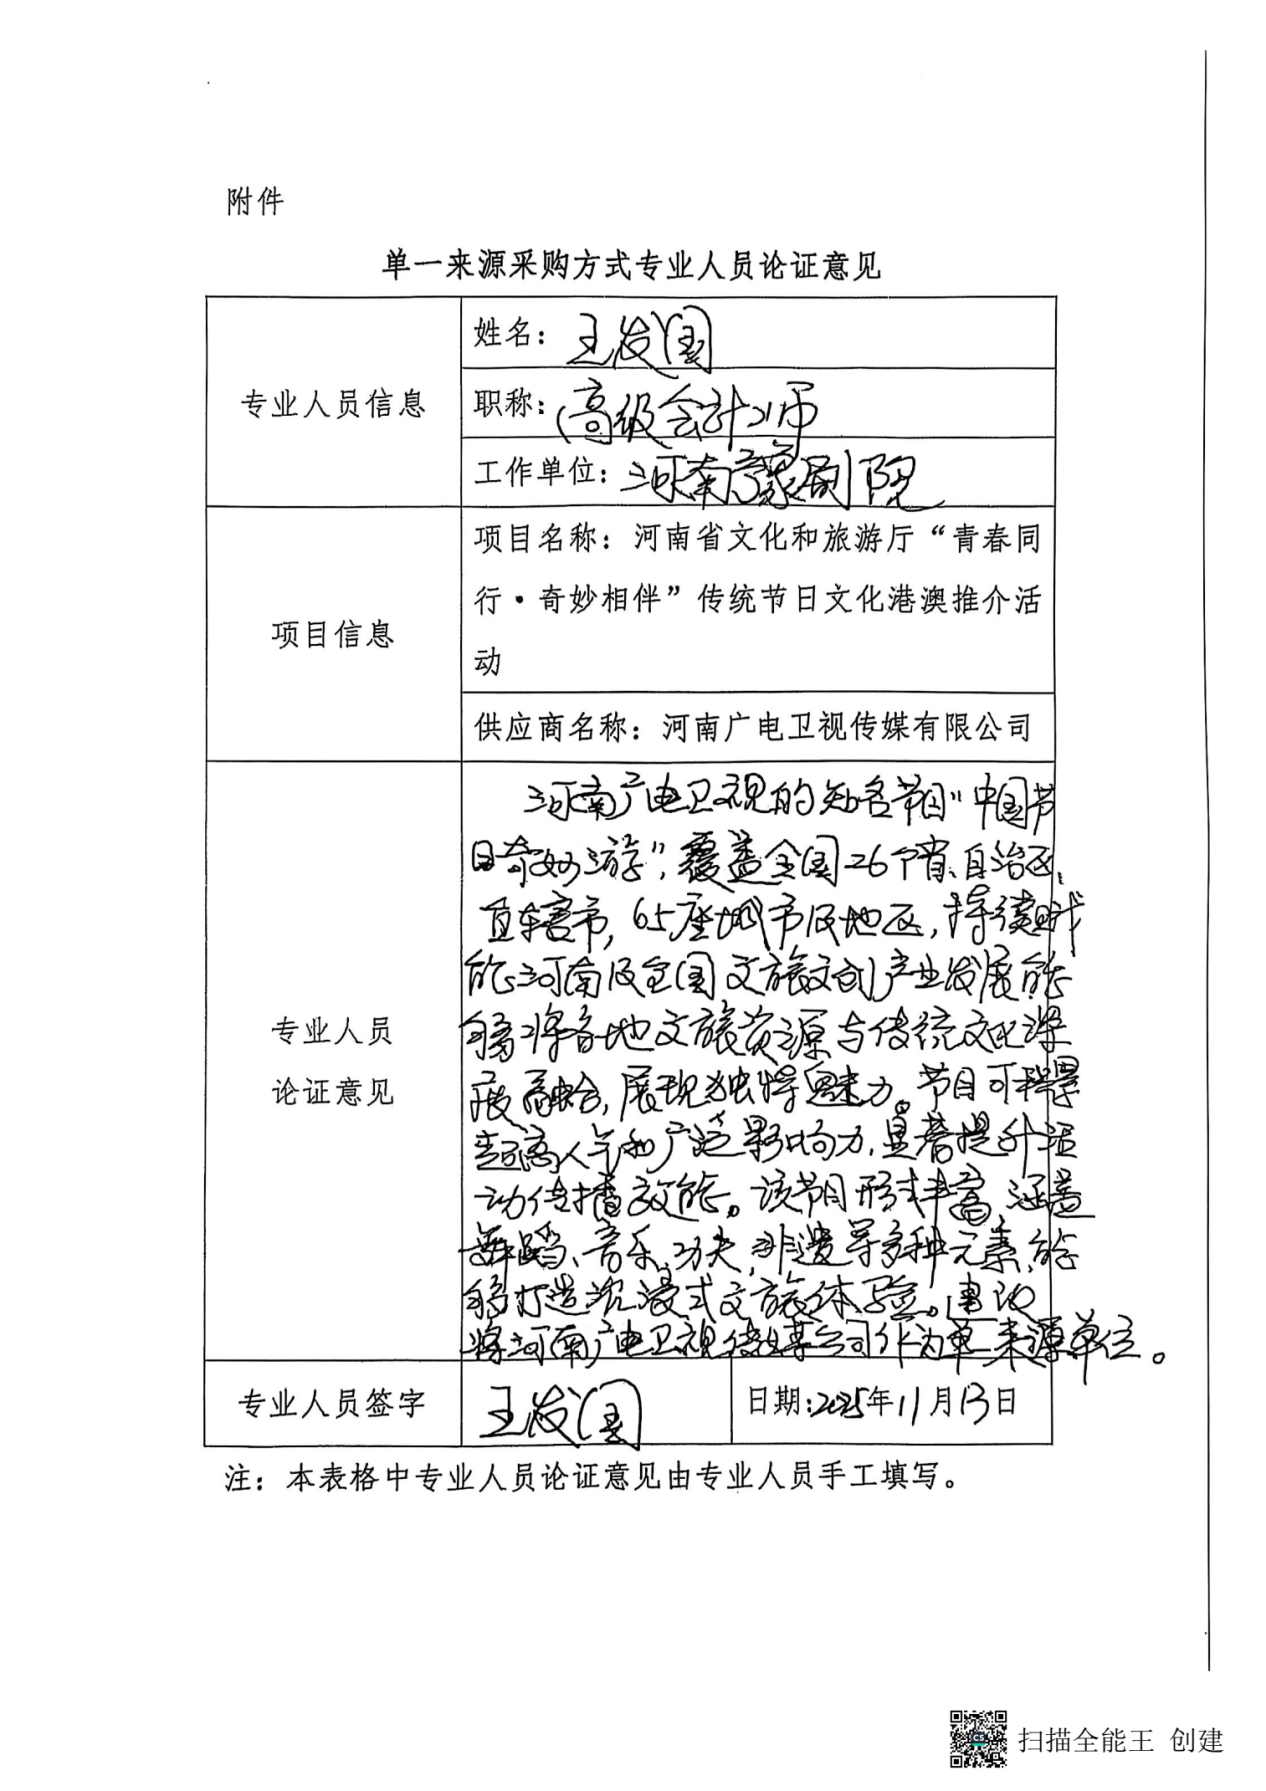 附件
单一来源采购方式专业人员论证意见
专业人员信息
姓名：王发国
职称：高级会计师
工作单位：河南豫剧院
项目信息
项目名称：河南省文化和旅游厅“青春同
行·奇妙相伴”传统节日文化港澳推介活
动
供应商名称：河南广电卫视传媒有限公司
专业人员
论证意见
河南广电卫视的知名节目“中国节
日奇妙游”，覆盖全国26个省、自治区、
直辖市，65座城市及地区，持续赋
能河南及全国文旅文创产业发展能
够将各地文旅资源与传统文化深
度融合，展现独特魅力。节目可积累
超高人气和广泛影响力，显著提升活
动传播效能。该节目形式丰富，涵盖
舞蹈、音乐、功夫、非遗等多种元素，能
够打造沉浸式文旅体验。建议
将河南广电卫视传媒公司作为单一来源单位。
专业人员签字
王发国
日期：2025年11月13日
注：本表格中专业人员论证意见由专业人员手工填写。
扫描全能王 创建